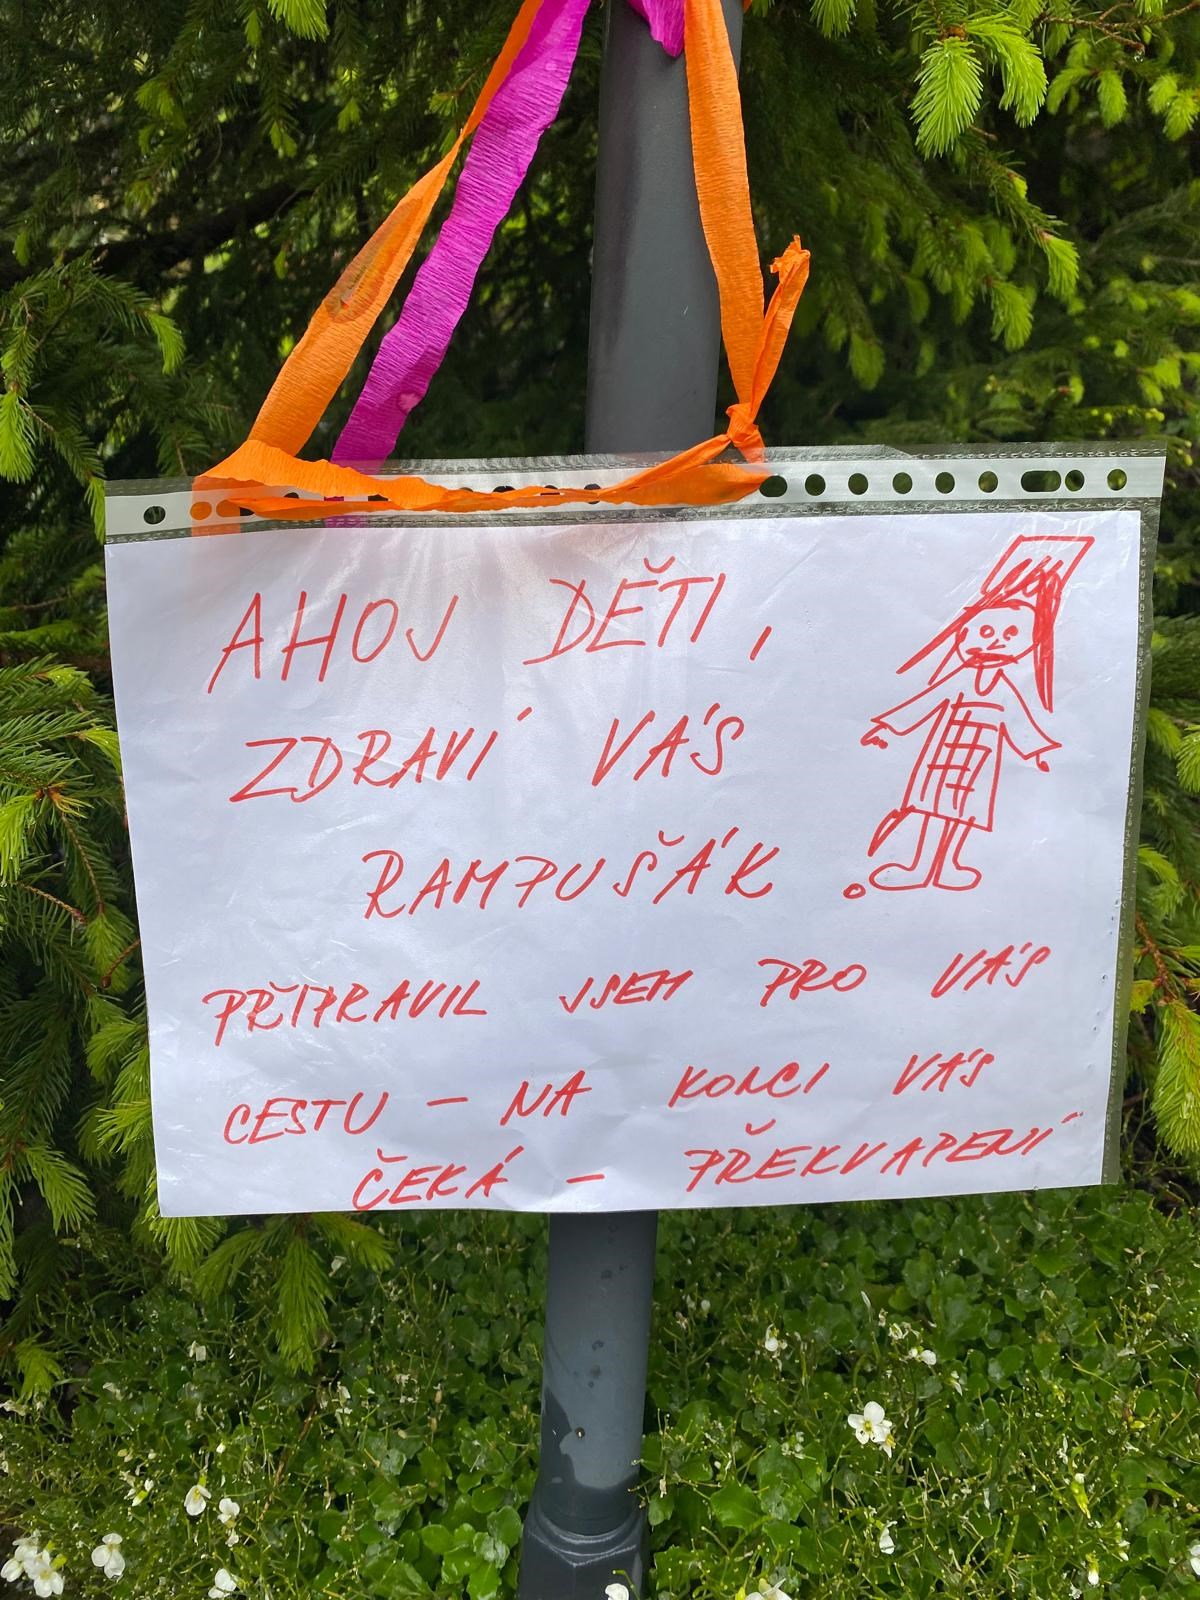 AHOJ DĚTI,
ZDRAVÍ VÁS
RAMPUŠÁK
PŘIPRAVIL JSEM PRO VÁS
CESTU - NA KONCI VÁS
ČEKÁ - PŘEKVAPENÍ